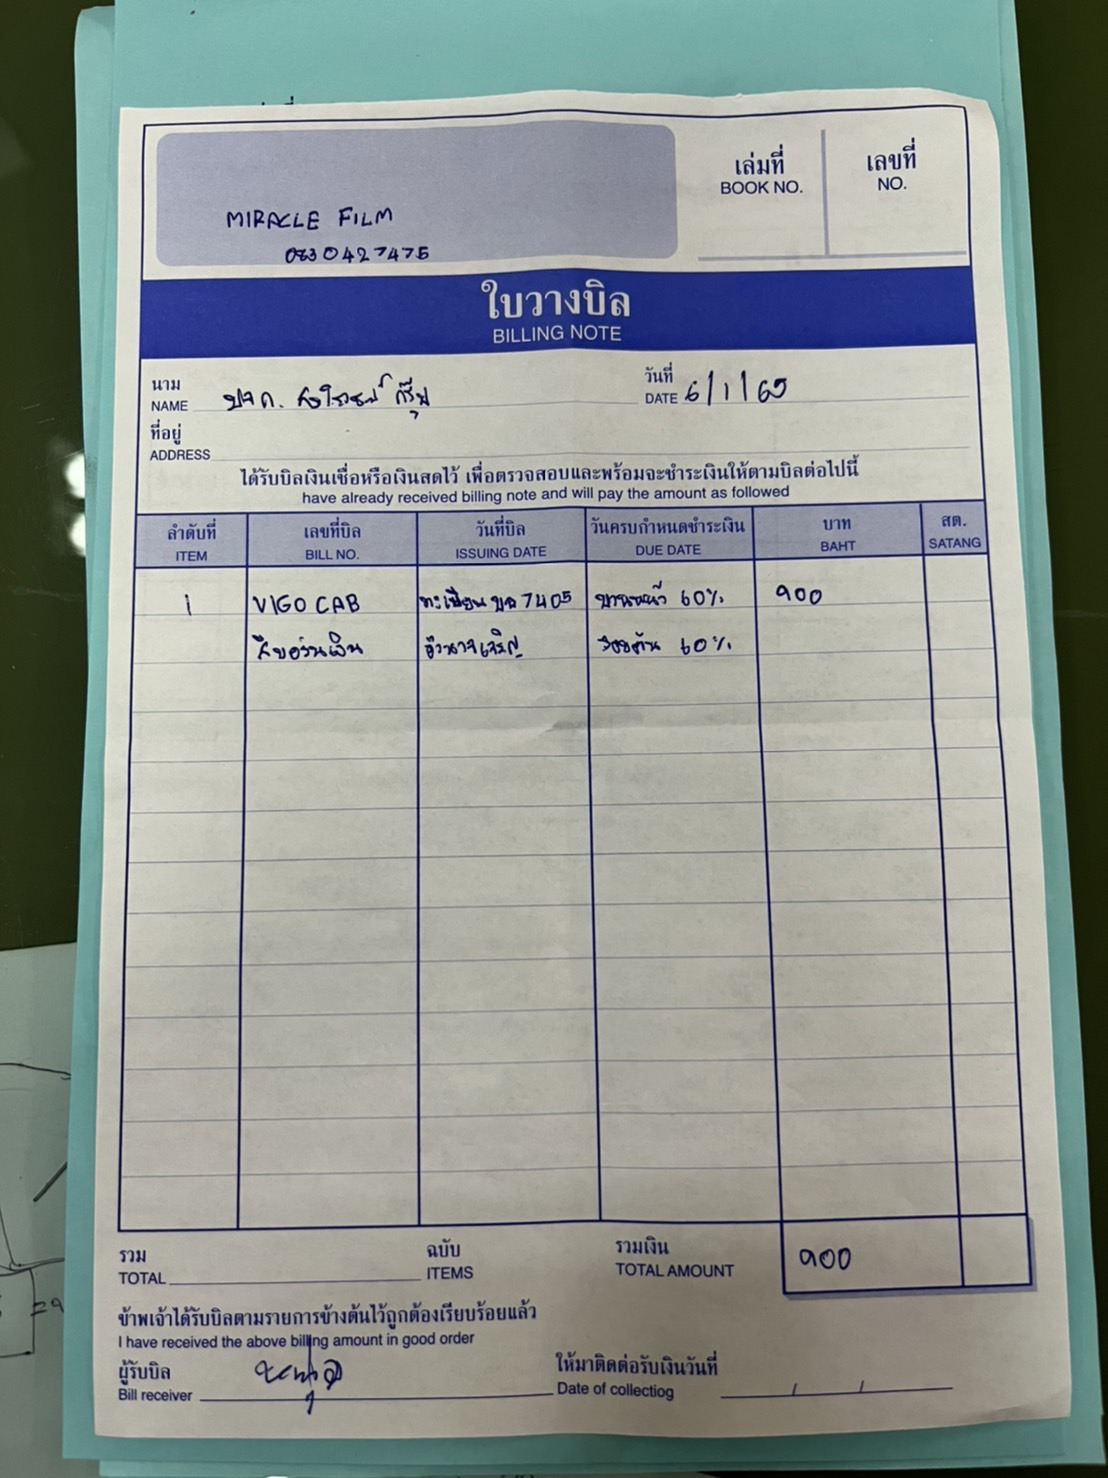 MIRACLE FILM
0830427475
เล่มที่
BOOK NO.
เลขที่
NO.
ใบวางบิล
BILLING NOTE
นาม
NAME
วันที่
DATE 6/1/69
ที่อยู่
ADDRESS
ได้รับบิลเงินเชื่อหรือเงินสดไว้ เพื่อตรวจสอบและพร้อมจะชำระเงินให้ตามบิลต่อไปนี้
have already received billing note and will pay the amount as followed
ลำดับที่ เลขที่บิล วันที่บิล วันครบกำหนดชำระเงิน บาท สต.
ITEM BILL NO. ISSUING DATE DUE DATE BAHT SATANG
1 VIGO CAB ทะเบียน บล 7405 บานหน้า 60% 900
สีบอร์นเงิน อำนาจเจริญ รอบคัน 60%
รวม ฉบับ รวมเงิน 900
TOTAL ITEMS TOTAL AMOUNT
ข้าพเจ้าได้รับบิลตามรายการข้างต้นไว้ถูกต้องเรียบร้อยแล้ว
I have received the above billing amount in good order
ผู้รับบิล
Bill receiver
ให้มาติดต่อรับเงินวันที่
Date of collectiog / /